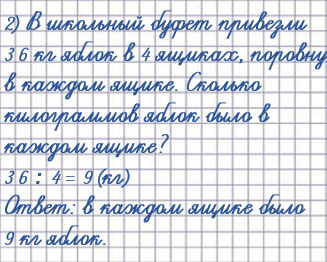 2) В школьный буфет привезли
36 кг яблок в 4 ящиках, поровну
в каждом ящике. Сколько
килограммов яблок было в
каждом ящике?
36 : 4 = 9 (кг)
Ответ: в каждом ящике было
9 кг яблок.